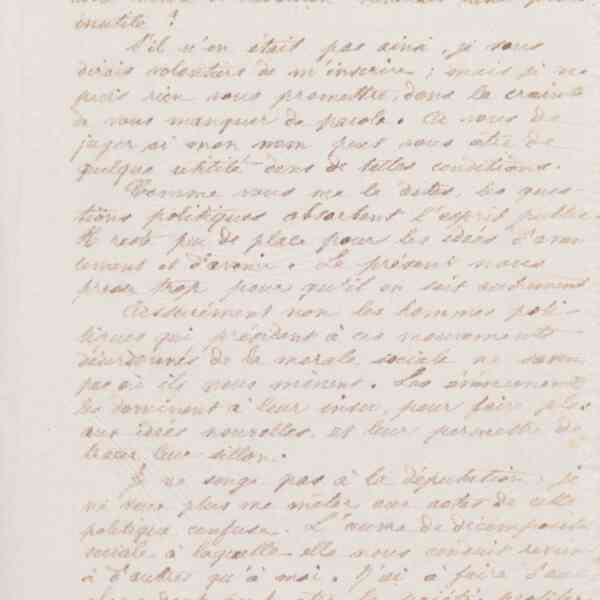 inutile ?
S'il n'en était pas ainsi, je vous
dirais volontiers de m'inscrire ; mais je ne
puis rien vous promettre, dans la crainte
de vous manquer de parole. à vous de
juger si mon nom peut vous être de
quelque utilité dans de telles conditions.
Comme vous me le dites, les ques-
tions politiques absorbent l'esprit public
Il reste peu de place pour les idées d'avan
cement et d'avenir. Le présent nous
presse trop pour qu'il en soit autrement
Assurément non les hommes poli-
tiques qui président à ces mouvements
désordonnés de la morale sociale ne savent
pas où ils nous mènent. Les évènements
les dominent à leur insu, pour faire place
aux idées nouvelles, et leur permettre de
tracer leur sillon.
Je ne songe pas à la députation, je
ne veux plus me mêler aux actes de cette
politique confuse. L'œuvre de décomposition
sociale à laquelle elle nous conduit revient
à d'autres qu'à moi. J'ai à faire
la société